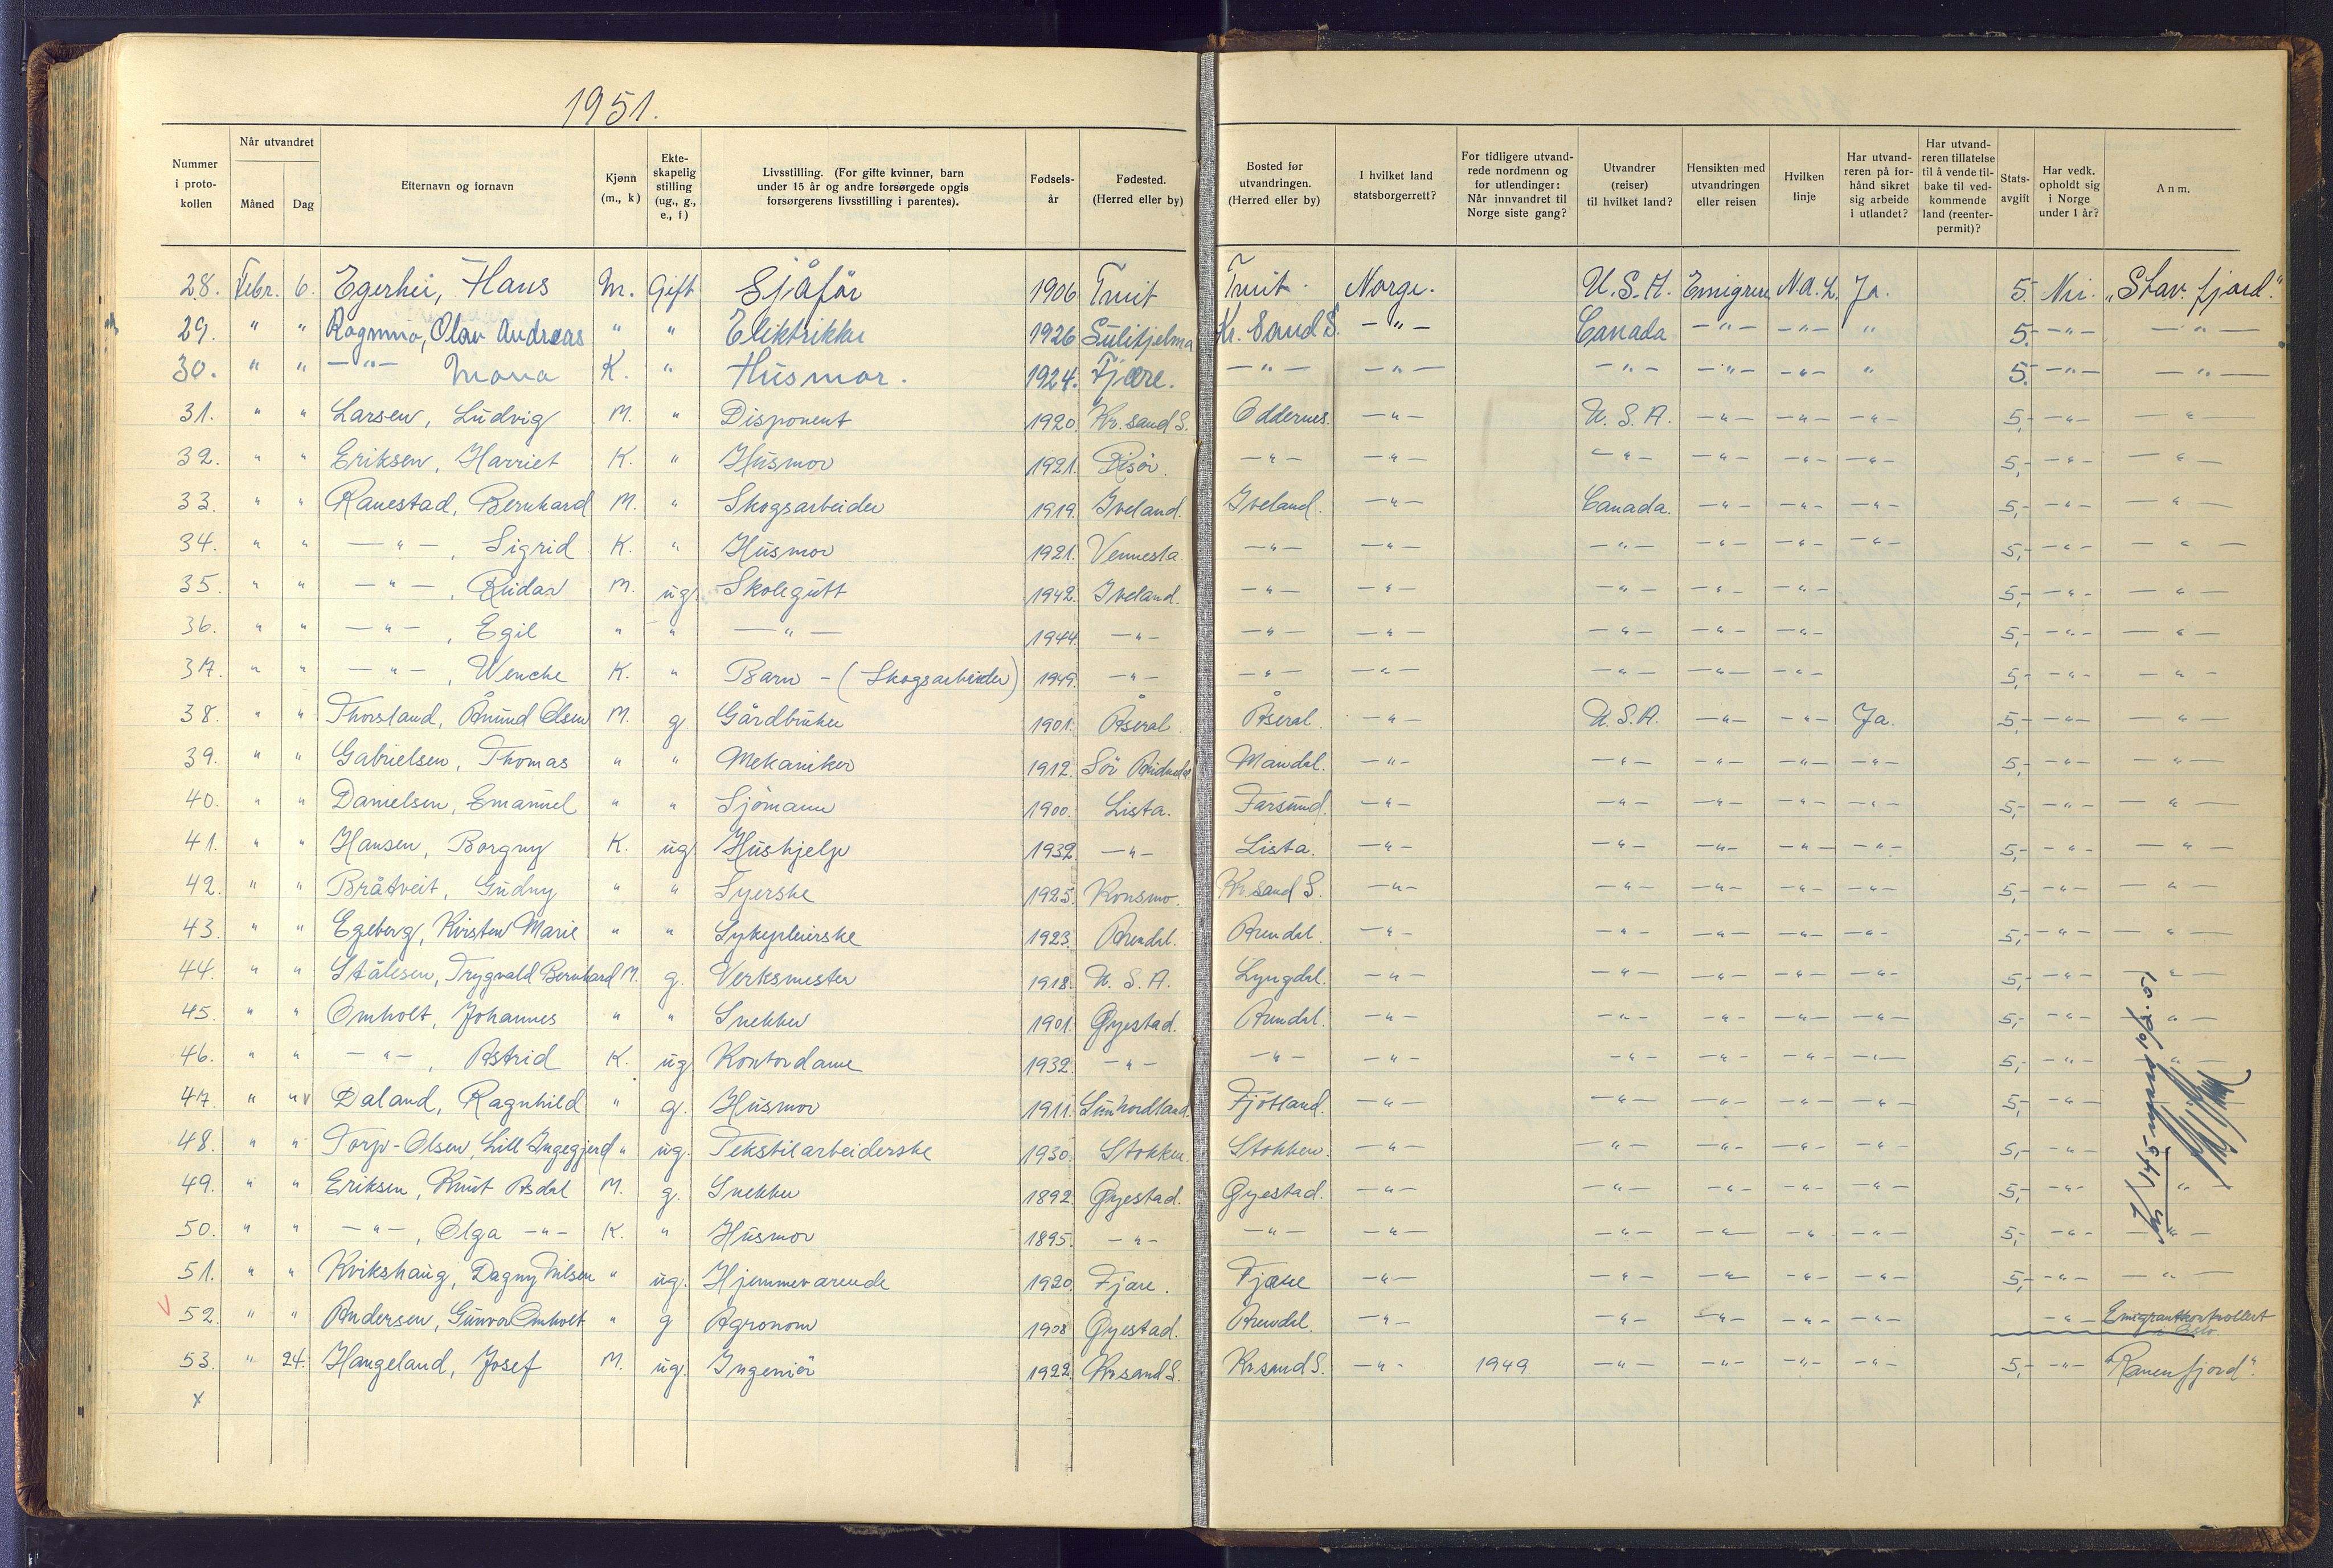 1951.
Nummer i protokollen | Når utvandret Måned | Dag | Efternavn og fornavn | Kjønn (m., k) | Ekteskapelig stilling (ug., g., e., f) | Livsstilling. (For gifte kvinner, barn under 15 år og andre forsørgede opgis forsørgerens livsstilling i parentes). | Fødselsår | Fødested. (Herred eller by) | Bosted før utvandringen. (Herred eller by) | I hvilket land statsborgerrett? | For tidligere utvandrede nordmenn og for utlendinger: Når innvandret til Norge siste gang? | Utvandrer (reiser) til hvilket land? | Hensikten med utvandringen eller reisen | Hvilken linje | Har utvandreren på forhånd sikret sig arbeide i utlandet? | Har utvandreren tillatelse til å vende tilbake til vedkommende land (reenterpermit)? | Statsavgift | Har vedk. opholdt sig i Norge under 1 år? | Anm.
28. Febr. 6. Egerhei, Hans M. Gift Sjåför 1906 Tveit Tveit. Norge. U.S.A. Emigrere N.A.L. Ja. 5. Nei. "Stav. fjord."
29. " " Ragnmo, Olav Andreas " " Elektriker 1926 Sulitjelma Kr. Sand S. -"- Canada -"- -"- " 5. -"- -"-
30. " " -"- Maria K. " Husmor. 1924. Fjære. -"- -"- -"- -"- -"- " 5. -"- -"-
31. " " Larsen, Ludvig M. " Disponent 1920. Kr.sand S. Oddernes. -"- U.S.A. -"- -"- -"- 5,- -"- -"-
32. " " Eriksen, Harriet K. " Husmor 1921. Risör. -"- -"- -"- -"- -"- -"- 5,- -"- -"-
33. " " Ranestad, Bernhard M. " Skogsarbeider 1919. Iveland. Iveland. -"- Canada. -"- -"- -"- 5,- -"- -"-
34. " " -"-, Sigrid K. " Husmor 1921. Vennesla -"- -"- -"- -"- -"- -"- 5,- -"- -"-
35. " " -"-, Reidar M. ug Skolegutt 1942. Iveland. -"- -"- -"- -"- -"- 5,- -"- -"-
36. " " -"-, Egil " " -"- 1944. -"- -"- -"- -"- -"- -"- 5,- -"- -"-
37. " " -"-, Wenche K. " Barn - (Skogsarbeider) 1949. -"- -"- -"- -"- -"- -"- 5,- -"- -"-
38. " " Thorsland, Ånund Olsen M. g. Gårdbruker 1901. Åseral. Åseral. -"- U.S.A. -"- -"- Ja. 5,- -"- -"-
39. " " Gabrielsen, Thomas " " Mekaniker 1912. Sör Audnedal Mandal. -"- -"- -"- -"- -"- 5,- -"- -"-
40. " " Danielsen, Emanuel " " Sjömann 1900. Lista. Farsund. -"- -"- -"- -"- -"- 5,- -"- -"-
41. " " Hansen, Borgny K. ug Hushjelp 1932. -"- Lista. -"- -"- -"- -"- -"- 5,- -"- -"-
42. " " Bråtveit, Gudny " " Syerske 1925. Konsmo. Kr.sand S. -"- -"- -"- -"- -"- 5,- -"- -"-
43. " " Egeberg, Kirsten Marie " " Sykepleierske 1923. Arendal. Arendal. -"- -"- -"- -"- -"- 5,- -"- -"-
44. " " Stålesen, Trygvald Bernhard M. g. Verksmester 1918. U.S.A. Lyngdal. -"- -"- -"- -"- -"- 5,- -"- -"-
45. " " Omholt, Johannes " " Snekker 1901. Øyestad. Arendal. -"- -"- -"- -"- -"- 5,- -"- -"-
46. " " -"-, Astrid K. ug Kontordame 1932. -"- -"- -"- -"- -"- -"- -"- 5,- -"- -"-
47. " " Daland, Ragnhild " g. Husmor 1911. Sunhordland. Fjotland. -"- -"- -"- -"- -"- 5,- -"-
48. " " Torp-Olsen, Lill Ingegjerd " ug. Tekstilarbeiderske 1930. Stokken. Stokken. -"- -"- -"- -"- -"- 5,- -"-
49. " " Eriksen, Knut Asdal M. g. Snekker 1892. Øyestad. Øyestad. -"- -"- -"- -"- -"- 5,- -"- "
50. " " -"-, Olga -"- K. " Husmor 1895. -"- -"- -"- -"- -"- -"- -"- 5,- -"- -"-
51. " " Kvikshaug, Dagny Nilsen " ug. Hjemmeværende 1920. Fjære. Fjære -"- -"- -"- -"- -"- 5,- -"- -"-
52. " " Andersen, Gunvor Omholt " g Agronom 1908 Øyestad. Arendal. -"- -"- -"- -"- -"- -"- Emigrantkontrollert i Oslo.
53. " 24. Hangeland, Josef M. ug. Ingeniör 1922. Kr.sand S. Kr.sand S. -"- 1949 -"- -"- -"- -"- 5,- -"- "Ranenfjord".
x